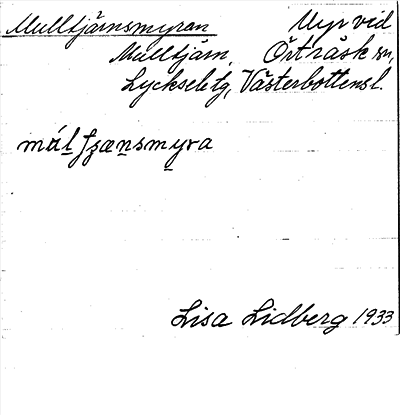 Mulltjärnsmyran Myr vid
Mulltjärn, Örträsk sn,
Lycksele tg, Västerbottens l.
múl̲ tʃæn̲smy̲ra
Lisa Lidberg 1933